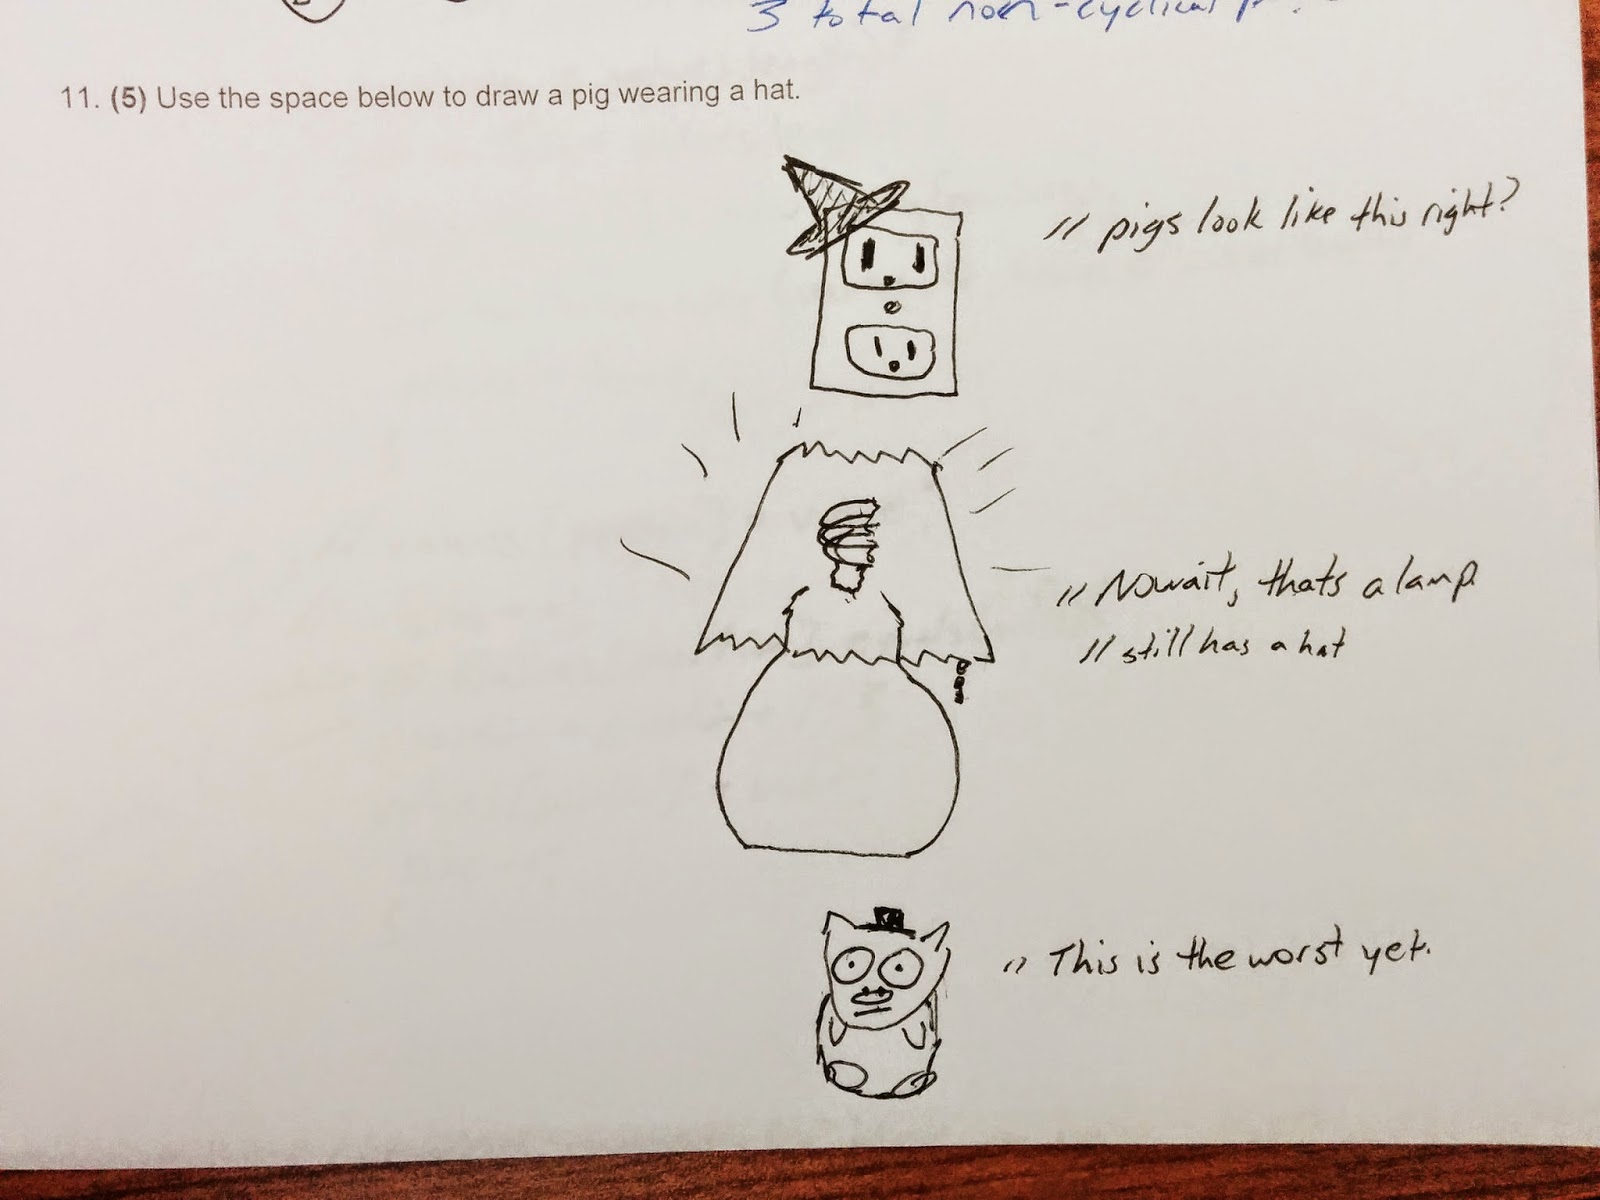 3 total non-cyclical
11. (5) Use the space below to draw a pig wearing a hat.
// pigs look like this right?
// No wait, thats a lamp.
// still has a hat
// This is the worst yet.